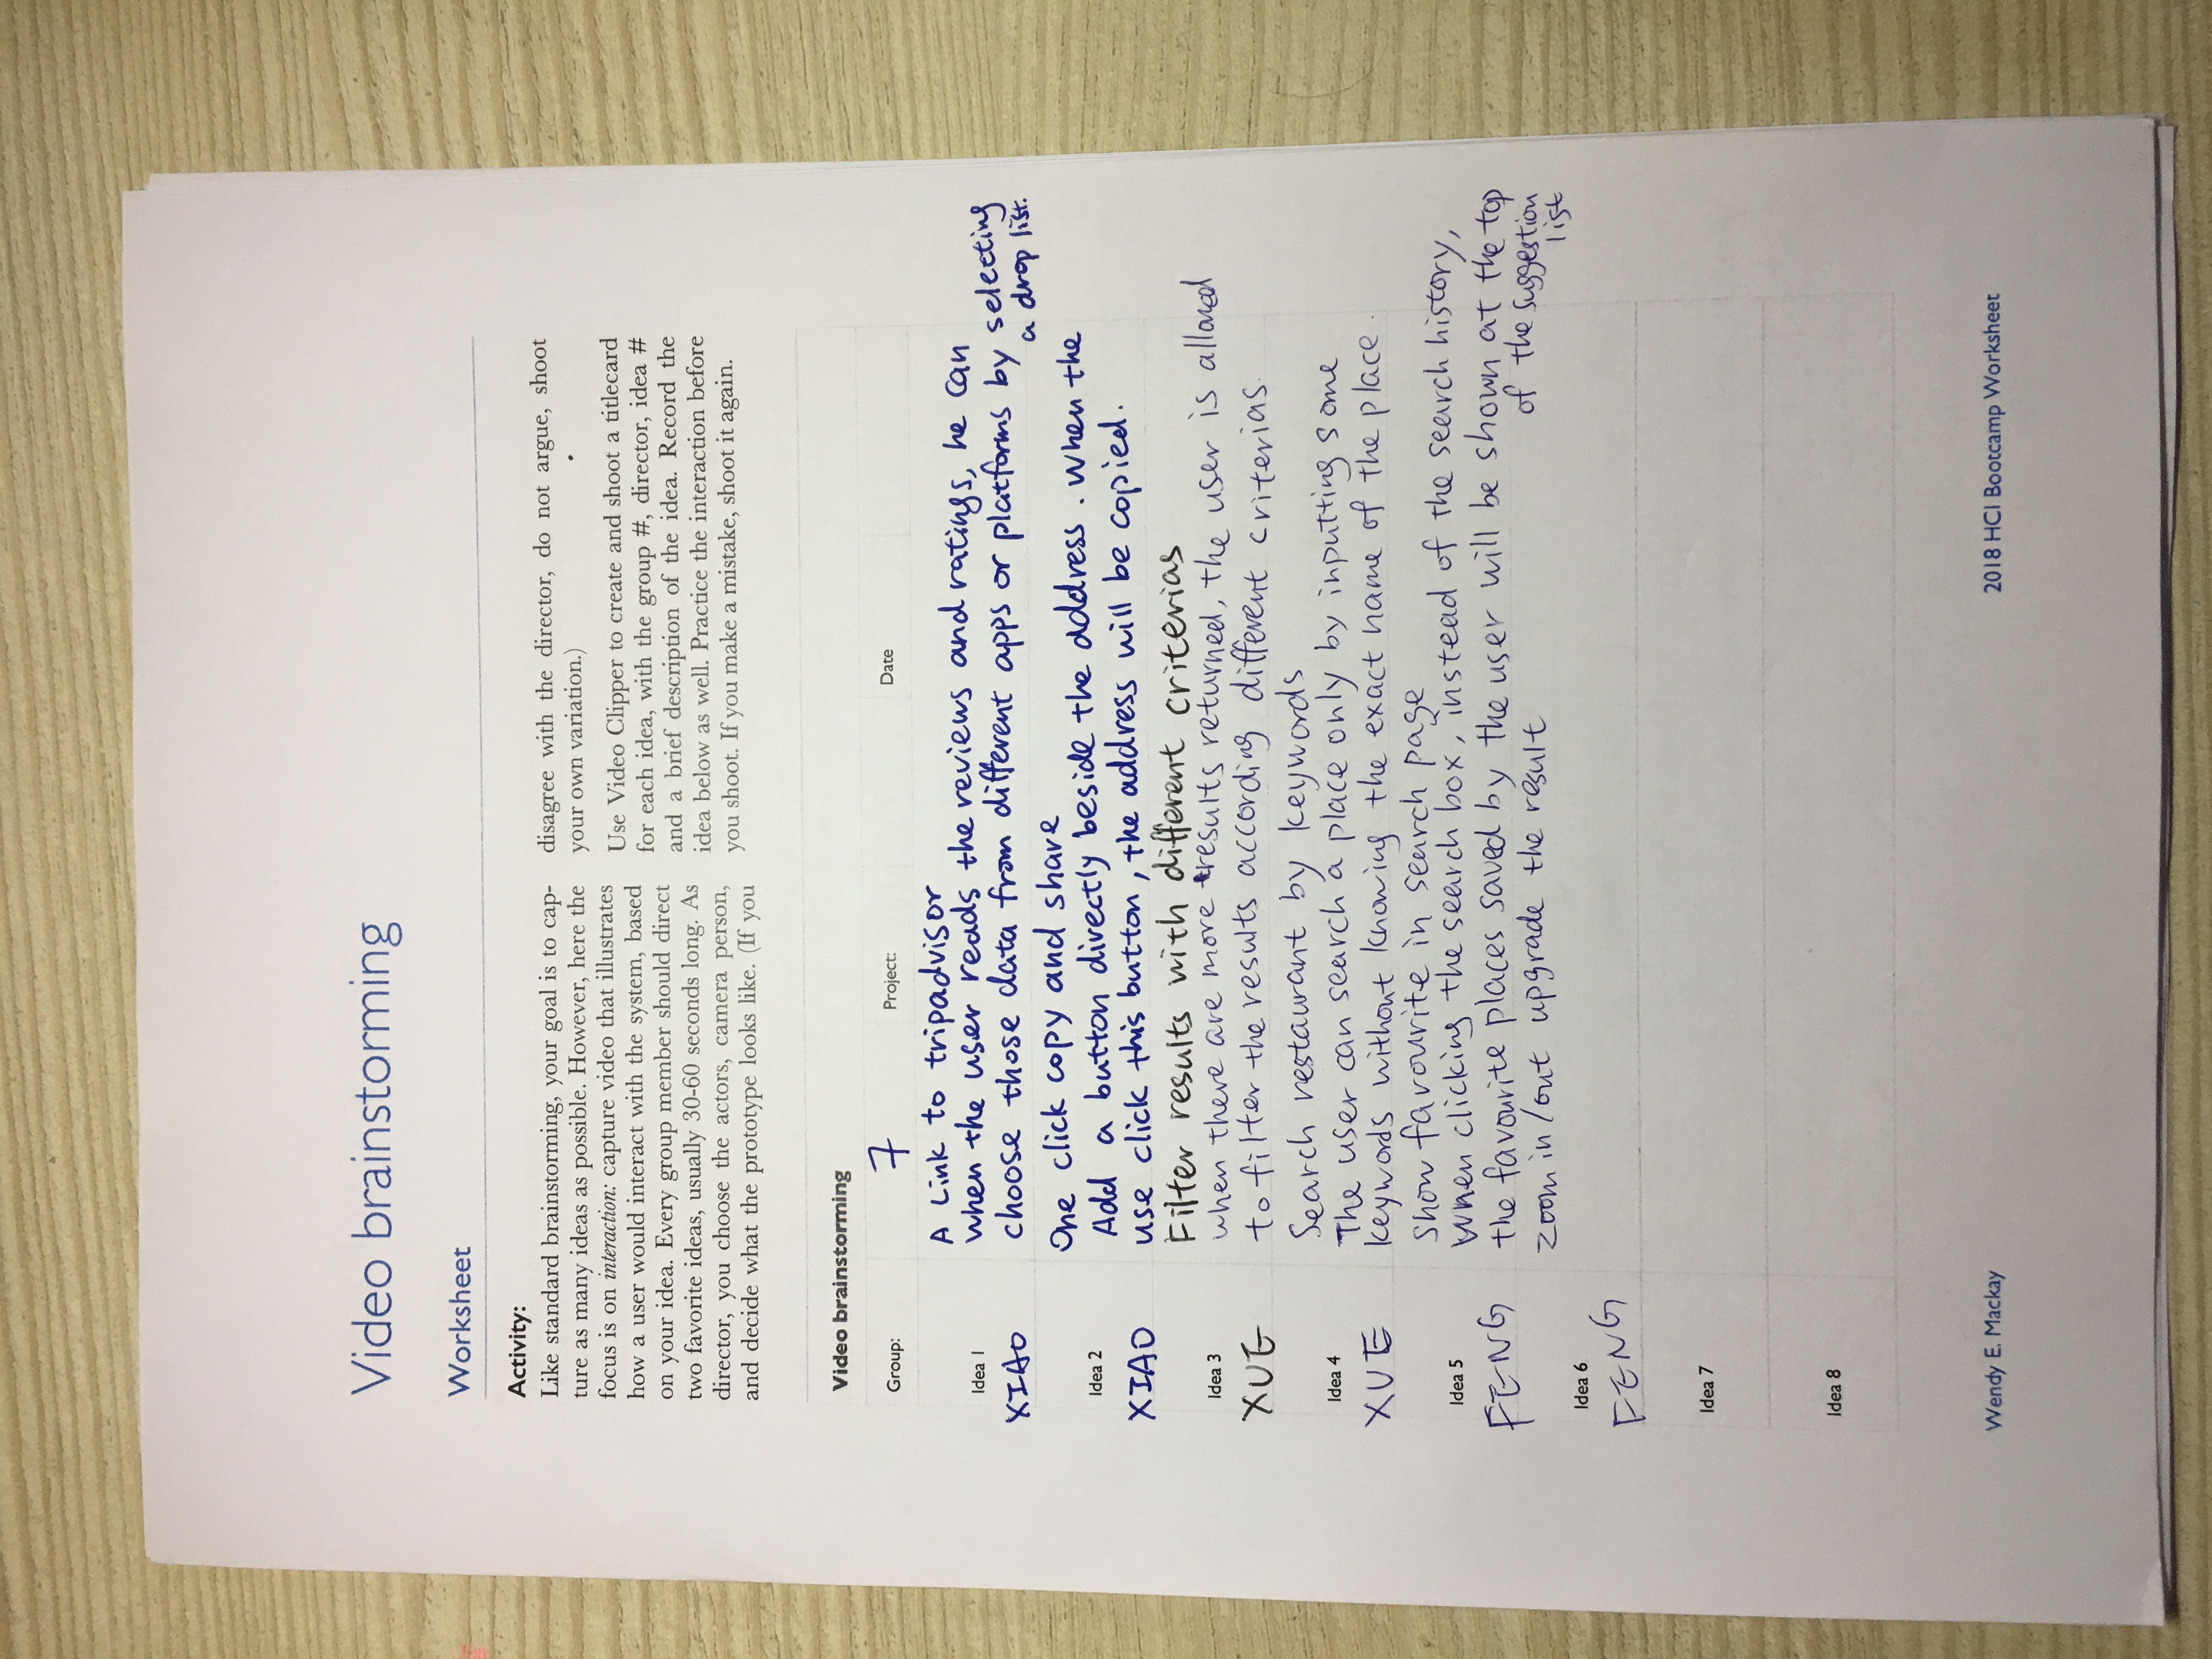 Video brainstorming
Worksheet
Activity:
Like standard brainstorming, your goal is to cap-
ture as many ideas as possible. However, here the
focus is on interaction: capture video that illustrates
how a user would interact with the system, based
on your idea. Every group member should direct
two favorite ideas, usually 30-60 seconds long. As
director, you choose the actors, camera person,
and decide what the prototype looks like. (If you
disagree with the director, do not argue, shoot
your own variation.)
Use Video Clipper to create and shoot a titlecard
for each idea, with the group #, director, idea #
and a brief description of the idea. Record the
idea below as well. Practice the interaction before
you shoot. If you make a mistake, shoot it again.
Video brainstorming
Group: 7 Project: Date
Idea 1
XIAO
A Link to tripadvisor
when the user reads the reviews and ratings, he can
choose those data from different apps or platforms by selecting
a drop list.
Idea 2
XIAO
One click copy and share
Add a button directly beside the address. When the
use click this button, the address will be copied.
Idea 3
XUE
Filter results with different criterias
when there are more results returned, the user is allowed
to filter the results according different criterias.
Idea 4
XUE
Search restaurant by keywords
The user can search a place only by inputting some
keywords without knowing the exact name of the place.
Idea 5
FENG
Show favourite in search page
When clicking the search box, instead of the search history,
the favourite places saved by the user will be shown at the top
of the suggestion
list
Idea 6
FENG
zoom in/out upgrade the result
Idea 7
Idea 8
Wendy E. Mackay
2018 HCI Bootcamp Worksheet